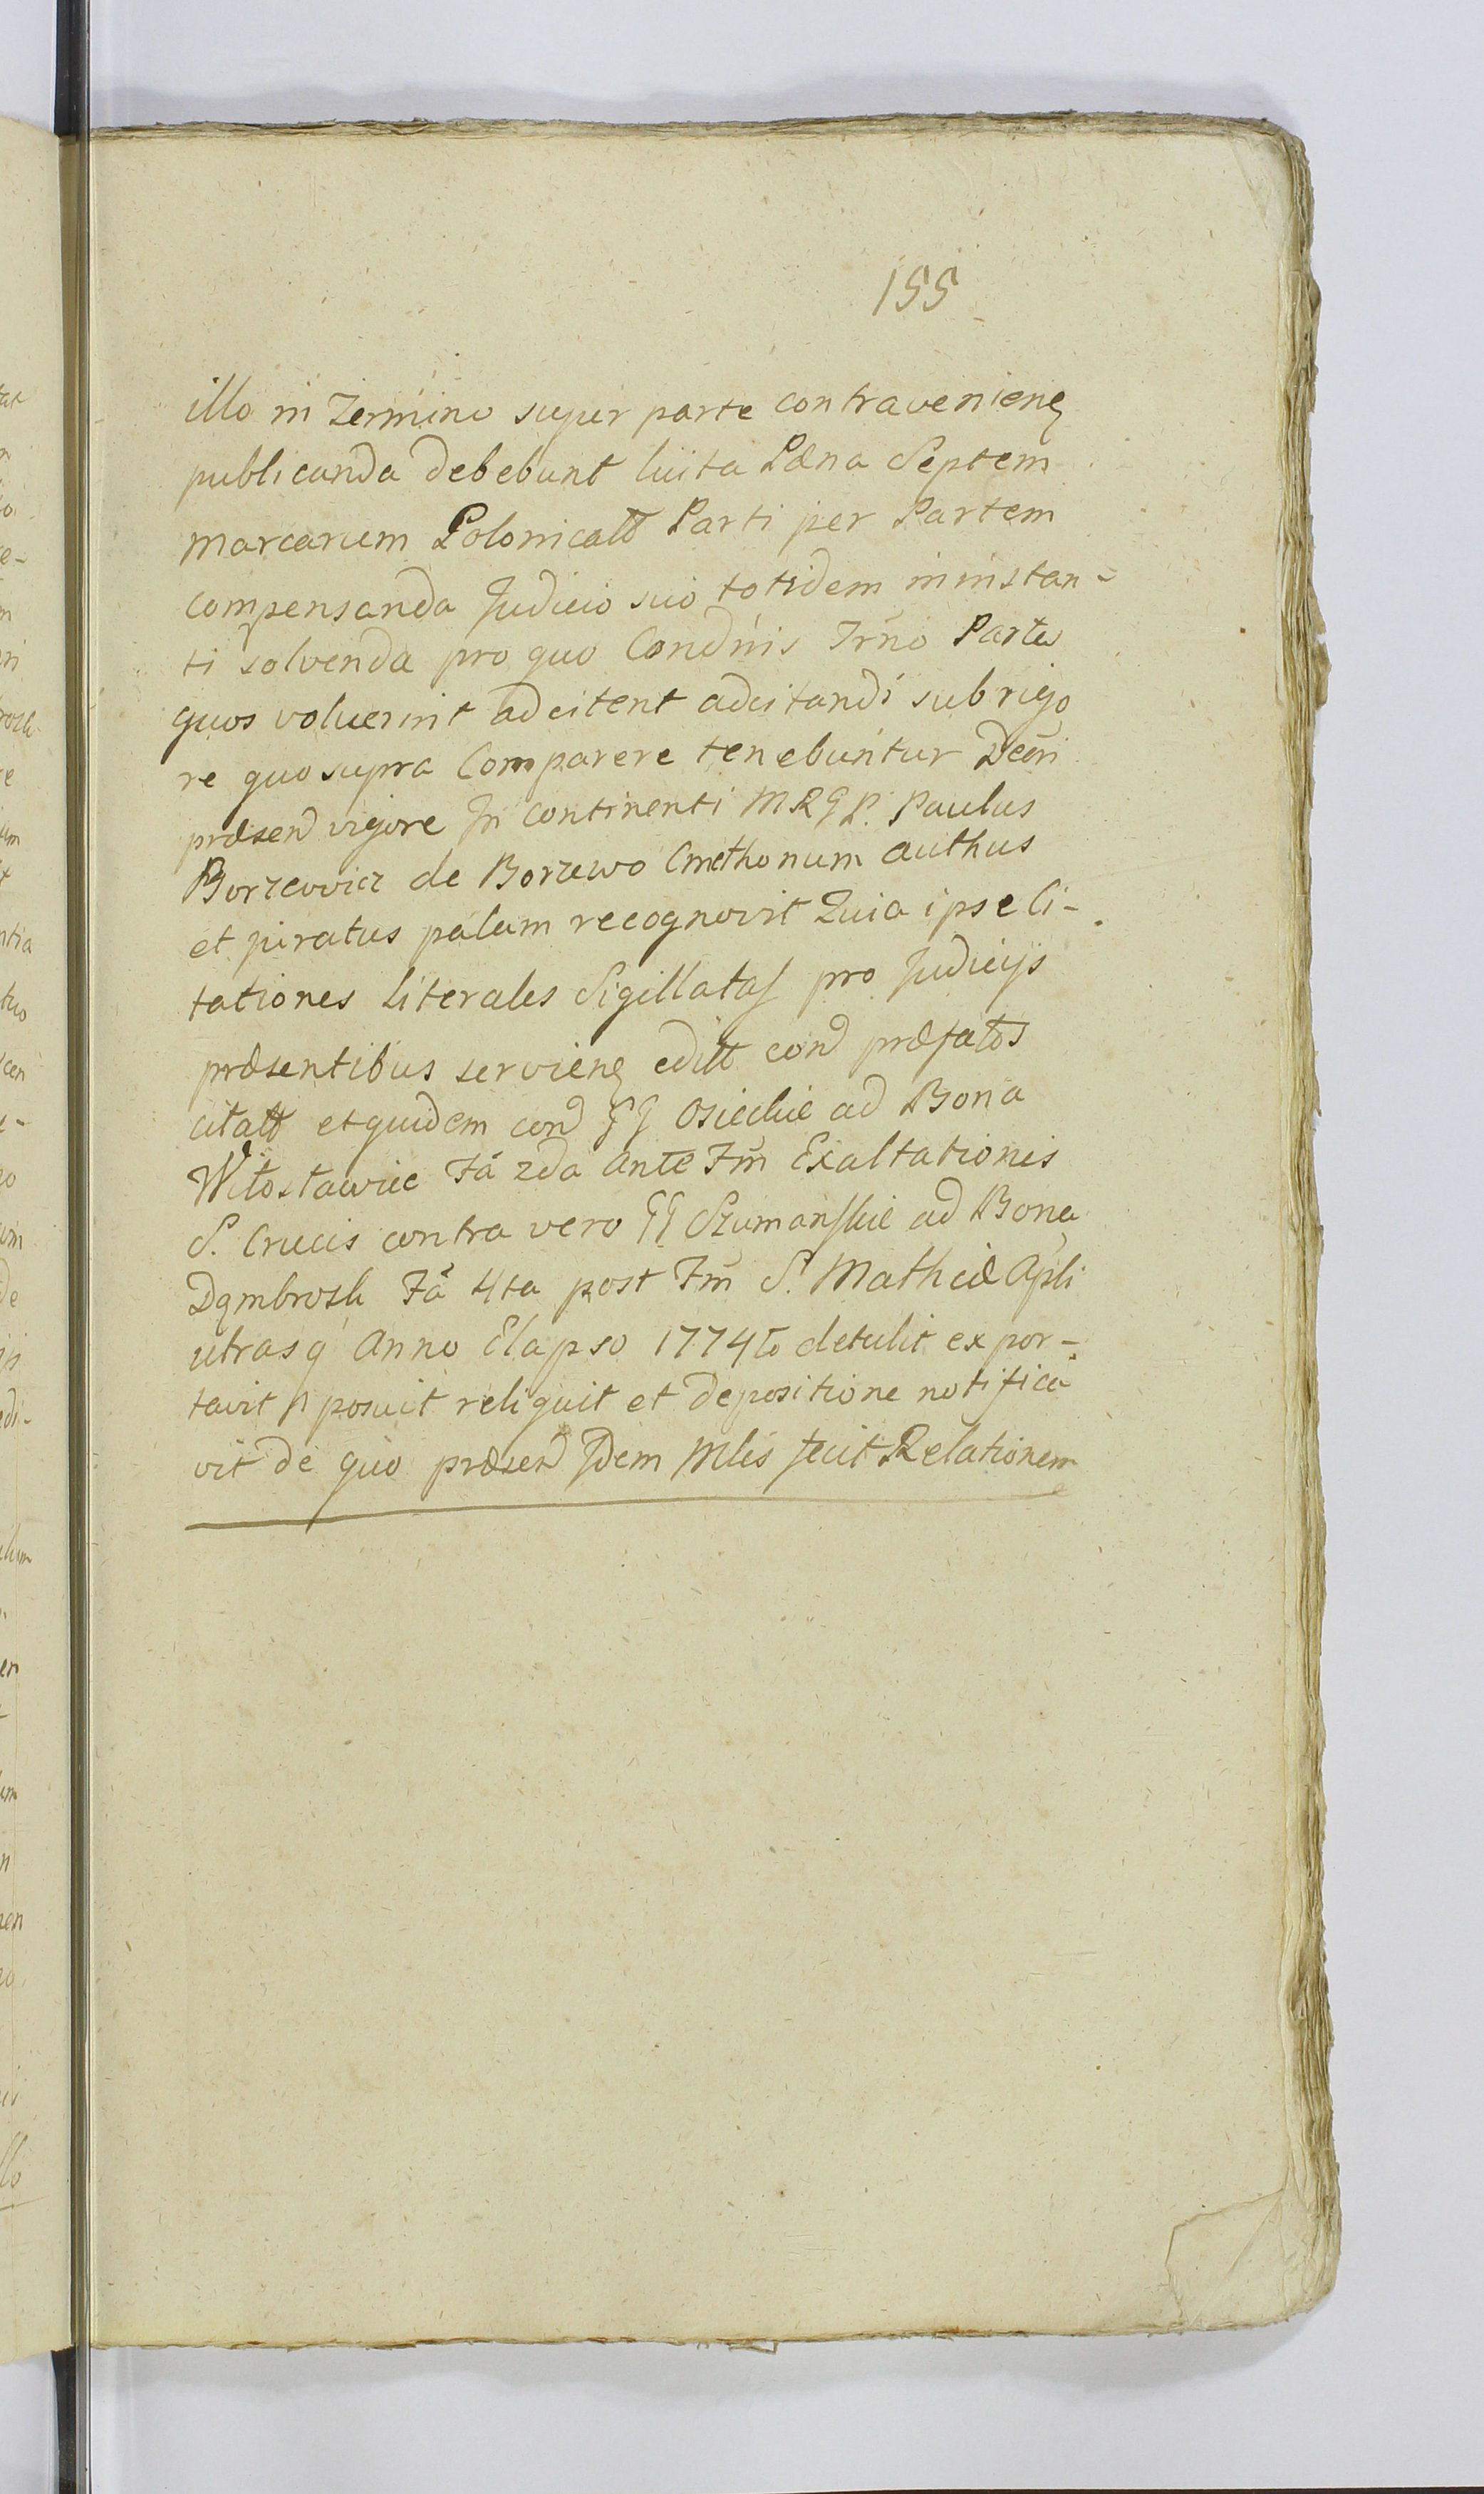 155
illo in Termino super parte contravenien
publicanda debebunt luita Pæna Septem
marcarum Polonicalt Parti per Partem
compensanda Judicio suo totidem in instan-
ti solvenda pro quo Condnis Trno Partes
quos voluerint adcitent adcitandi sub rigo
re quo supra Comparere tenebuntur Decri
præsend vigore In continenti MRGP. Paulus
Borzewicz de Borzewo Cmethonum authus
et juratus palam recognovit Quia ipse Ci-
tationes Literales Sigillatas pro Judicijs
præsentibus servien edilt cond præfatos
citalt et quidem cond GG Osieckie ad Bona
Witostawice Fa 2da Ante Fm Exaltationis
S. Crucis contra vero GG Szumanskie ad Bona
Dąmbrosk Fa 4ta post Fm S. Mathiæ Apli
utrasq Anno Elapso 1774to detulit expor-
tavit posuit reliquit et depositione notifica
vit de quo præsend Idem Mlis fecit Relationem